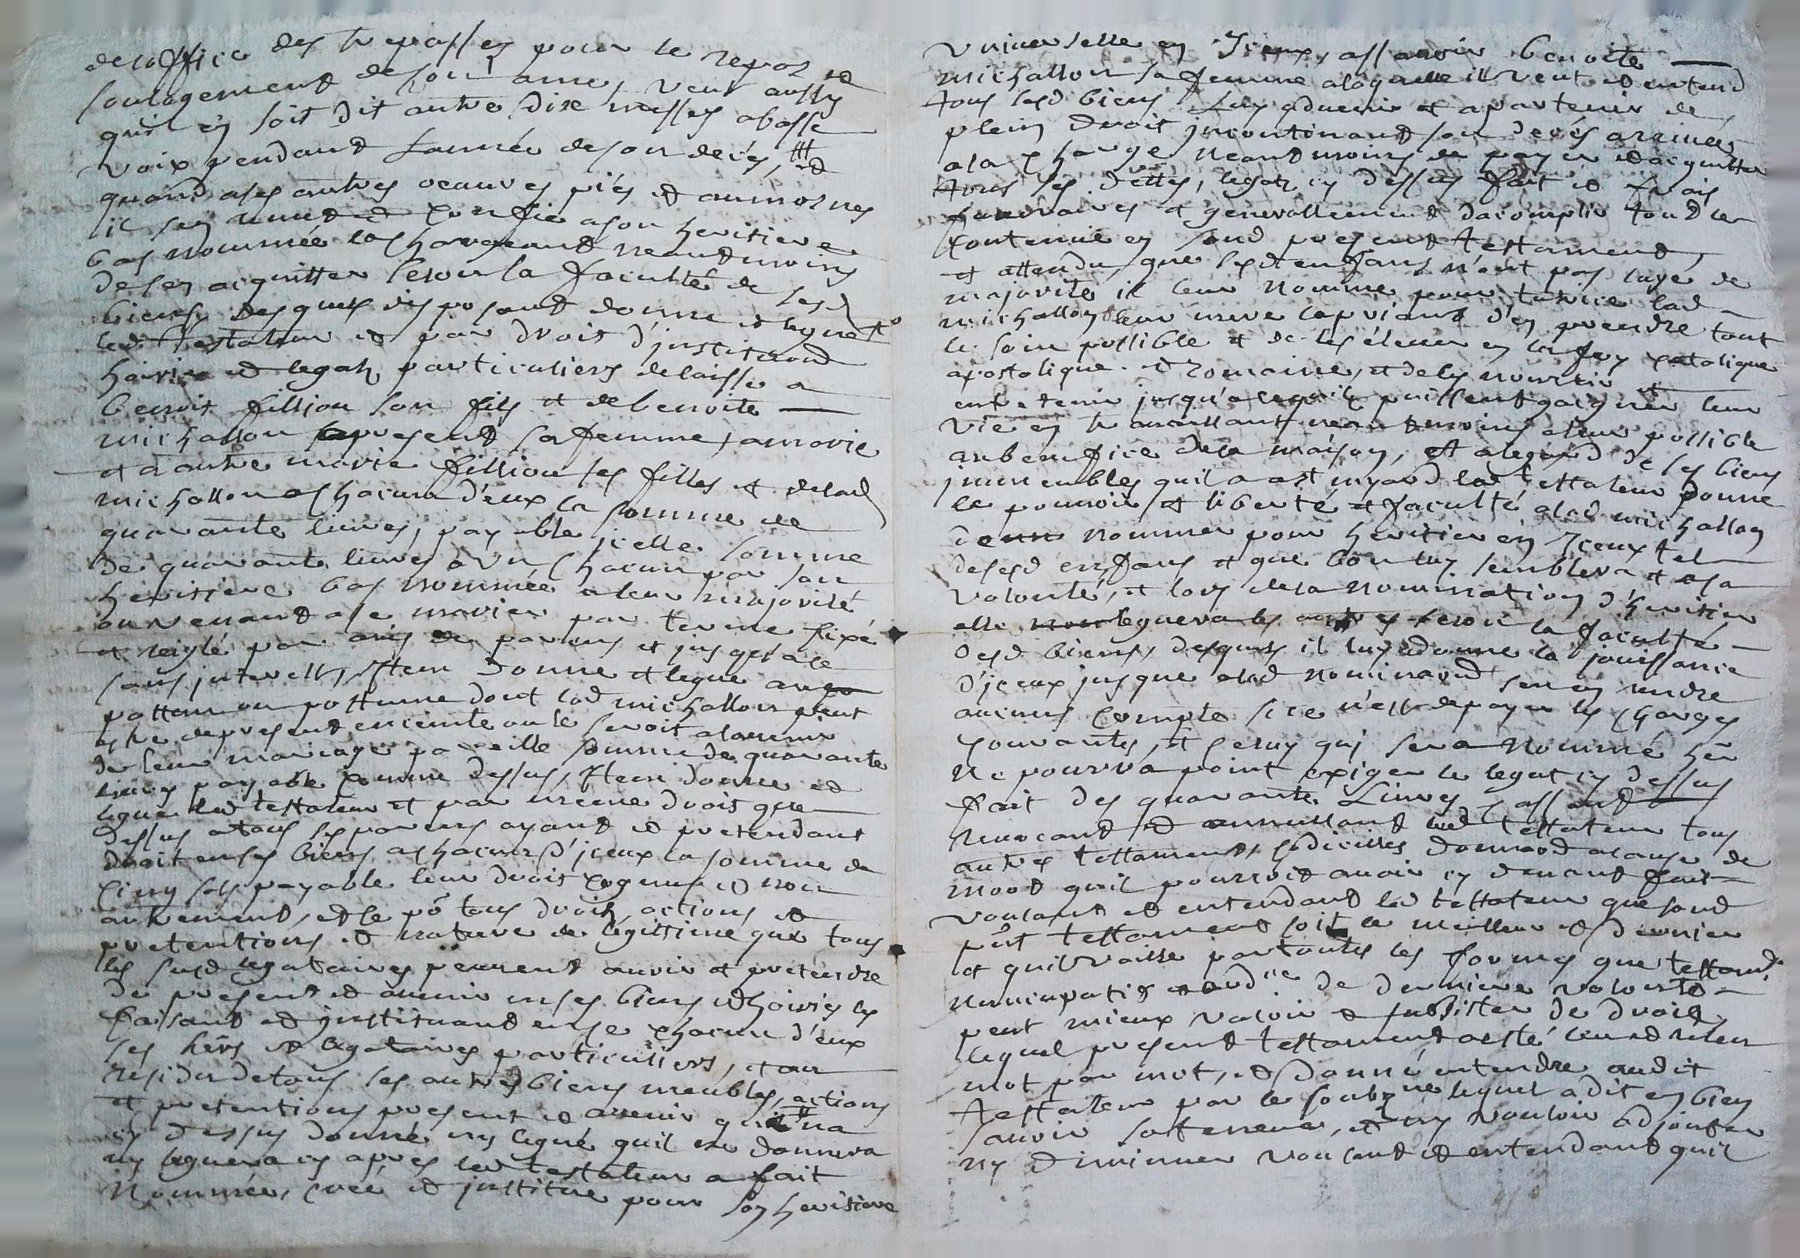 de loffice des trepasses pour le repos et
soulagement de son ame, veut aussy
quil en soit dit autre dix messes a basse
voix pendant Lannée de son decés, et
quand a ses autres oeauvres piës et aumosnes
il sen remet et confie a son heritiere
bas nommée la chargeant neandmoins
de les acquitter selon la faculté de sesd
biens, desquels disposant donne et legue
led testateur et par droit d'institution
hoirie et legat particuliers delaisse a
benoit fillion son fils et de benoite
michallon a present sa femme, a marie
et a autre marie fillion ses filles et de lad
michallon a chacun d'eux la somme de
quarante livres, payable icelle somme
de quarante livres a un chacun par son
heritiere bas nommée a leur majorité
ou venant a se marier par terme fixé
et reiglé par avis de parens et jusques a ce
sans interests, Item donne et legue au
posthume ou posthume dont lad michallon peut
estre de present enceinte ou le seroit a lavenir
de leur mariage pareille somme de quarante
livres payable comme dessus, Item donne et
legue led testateur et par mesme droit que
dessus a tous ses parens ayant et pretendant
droit en ses biens a chacun d'iceux la somme de
cinq sols payable leur droit cognu et non
autrement, et ce po tous droits, actions et
pretentions et nature de legittime que tous
les susd legataires peuvent avoir et pretendre
de present et avenir en ses biens et hoirie les
faisant et instituant en ce chacun d'eux
ses hers et legataires particuliers, et au
residu de tous ses autres biens meubles, actions
et pretentions present et avenir quil na
cy dessus donné ny legué quil ne donnera
ny leguera cy apres led testateur a fait
nommée, créé et institue pour son heritiere
universelle en Iceux, assavoir benoite
michallon sa femme a laquelle il veut et entend
tous sesd biens luy advenir et apartenir de
plein droit incontinant son decés arrivé
a la charge neantmoins de payer et acquitter
tous ses dettes, legats cy dessus fait et frais
funeraires et generallement dacomplir tout le
contenue en sond present testament,
et attendu que sesd enfans n'ont pas lage de
majorité il leur nomme pour tutrice lad
michallon leur mere la priant d'en prendre tout
le soin possible et de les élever en la foy catolique
apostolique et Romaine, et de les nourrir et
entretenir jusqu'a ce quils puissent gaigner leur
vie en travaillant neantmoins a leur possible
au benefice de la maison, Et a legard de ses biens
immeubles quil a led testateur donne
le pouvoir et liberté et faculté a lad michallon
d'en nommer pour heritier en Iceux tel
de sesd enfans et que bon luy semblera et a sa
volonté, et lors de la nomination d'heritier
elle leguera les autres selon la faculté
desd biens, desquels il luy donne la jouissance
d'iceux jusque a lad nomination sans en rendre
aucuns compte si ce n'est de payer les charges
courantes, et celuy qui sera nommé her
ne pourra point exiger le legat cy dessus
fait des quarante Livres, cassant
revocant et annullant led testateur tous
autres testaments, codicilles donnaon a cause de
mort quil pourroit avoir cy devant fait
voulant et entendant led testateur que sond
pnt testament soit le meilleur et dernier
et quil vaille par toutes les formes que testamt
nuncupatif et ordre de derniere volonté
peut mieux valoir et subsister de droit,
lequel present testament a esté leu et releu
mot par mot, et donné entendre audit
testateur par le soubz ne lequel a dit en bien
sauoir sa teneur, et ny vouloir adjouter
ny diminuer voulant et entendant quil